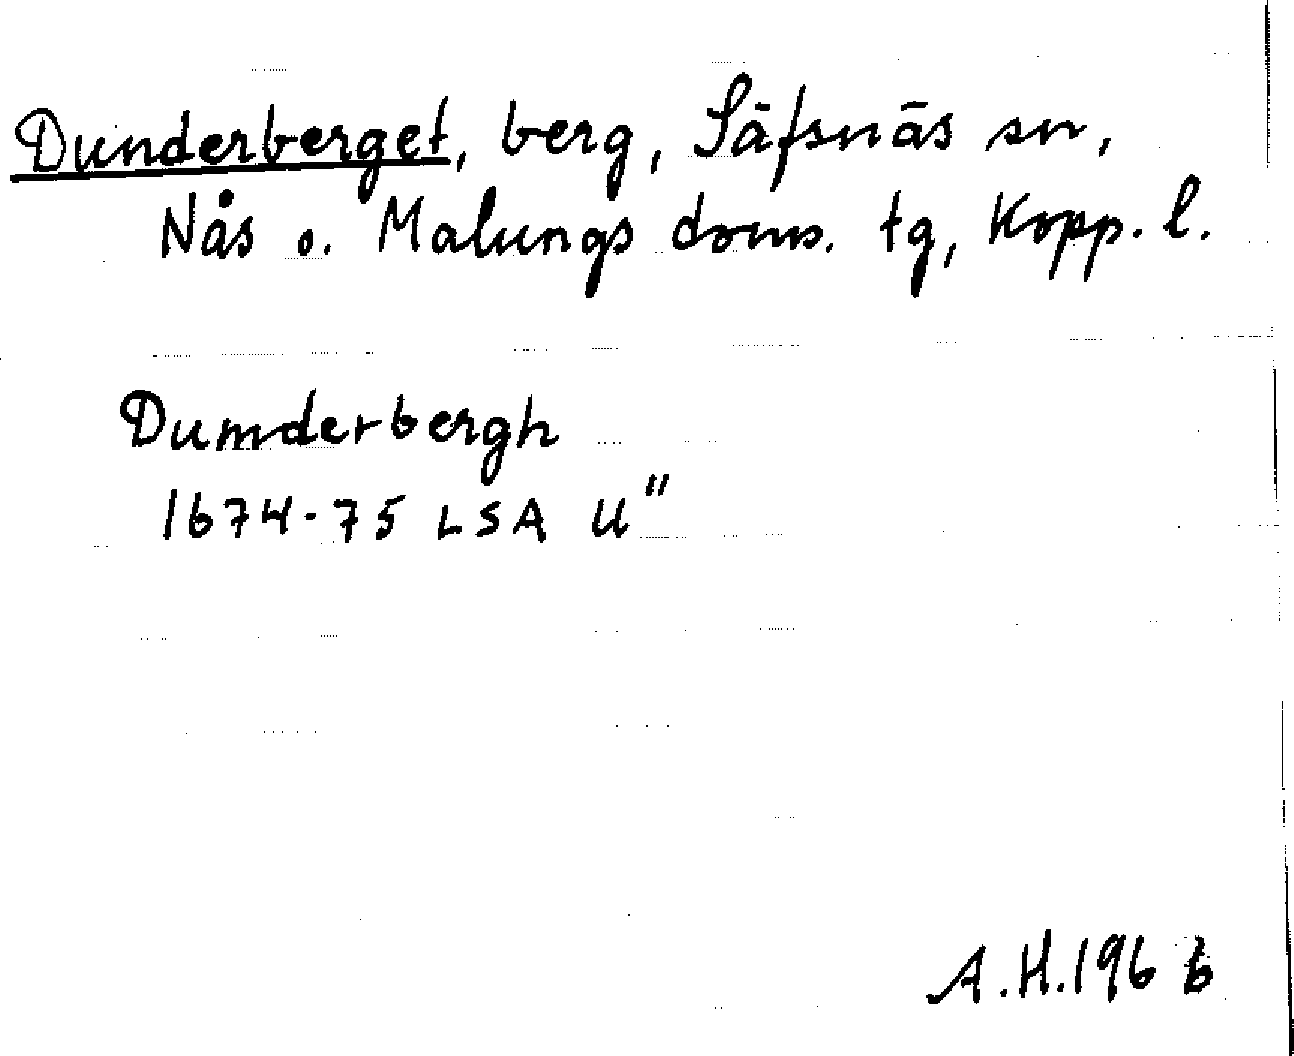 Dunderberget, berg, Säfsnäs sn,
Nås o. Malungs doms. tg, Kopp. l.
Dumderbergh
1674-75 LSA U"
A.H. 1966